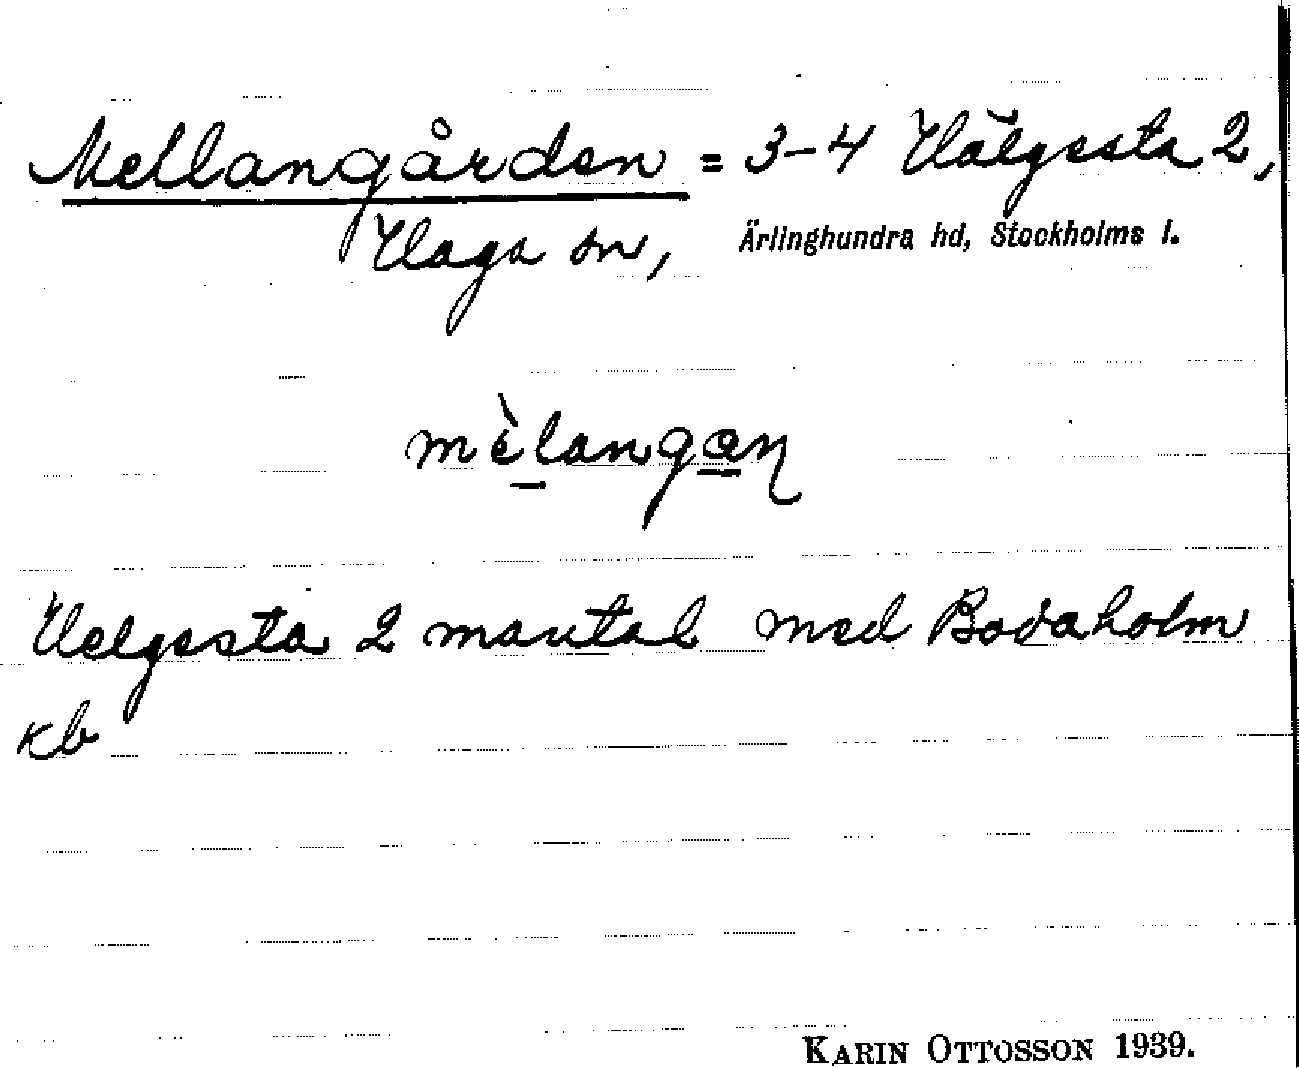 Mellangården = 3-4 Hälgesta 2,
Haga sn, Ärlinghundra hd, Stockholms l.
mèlangan
Helgesta 2 mantal med Bodaholm
kb
KARIN OTTOSSON 1939.